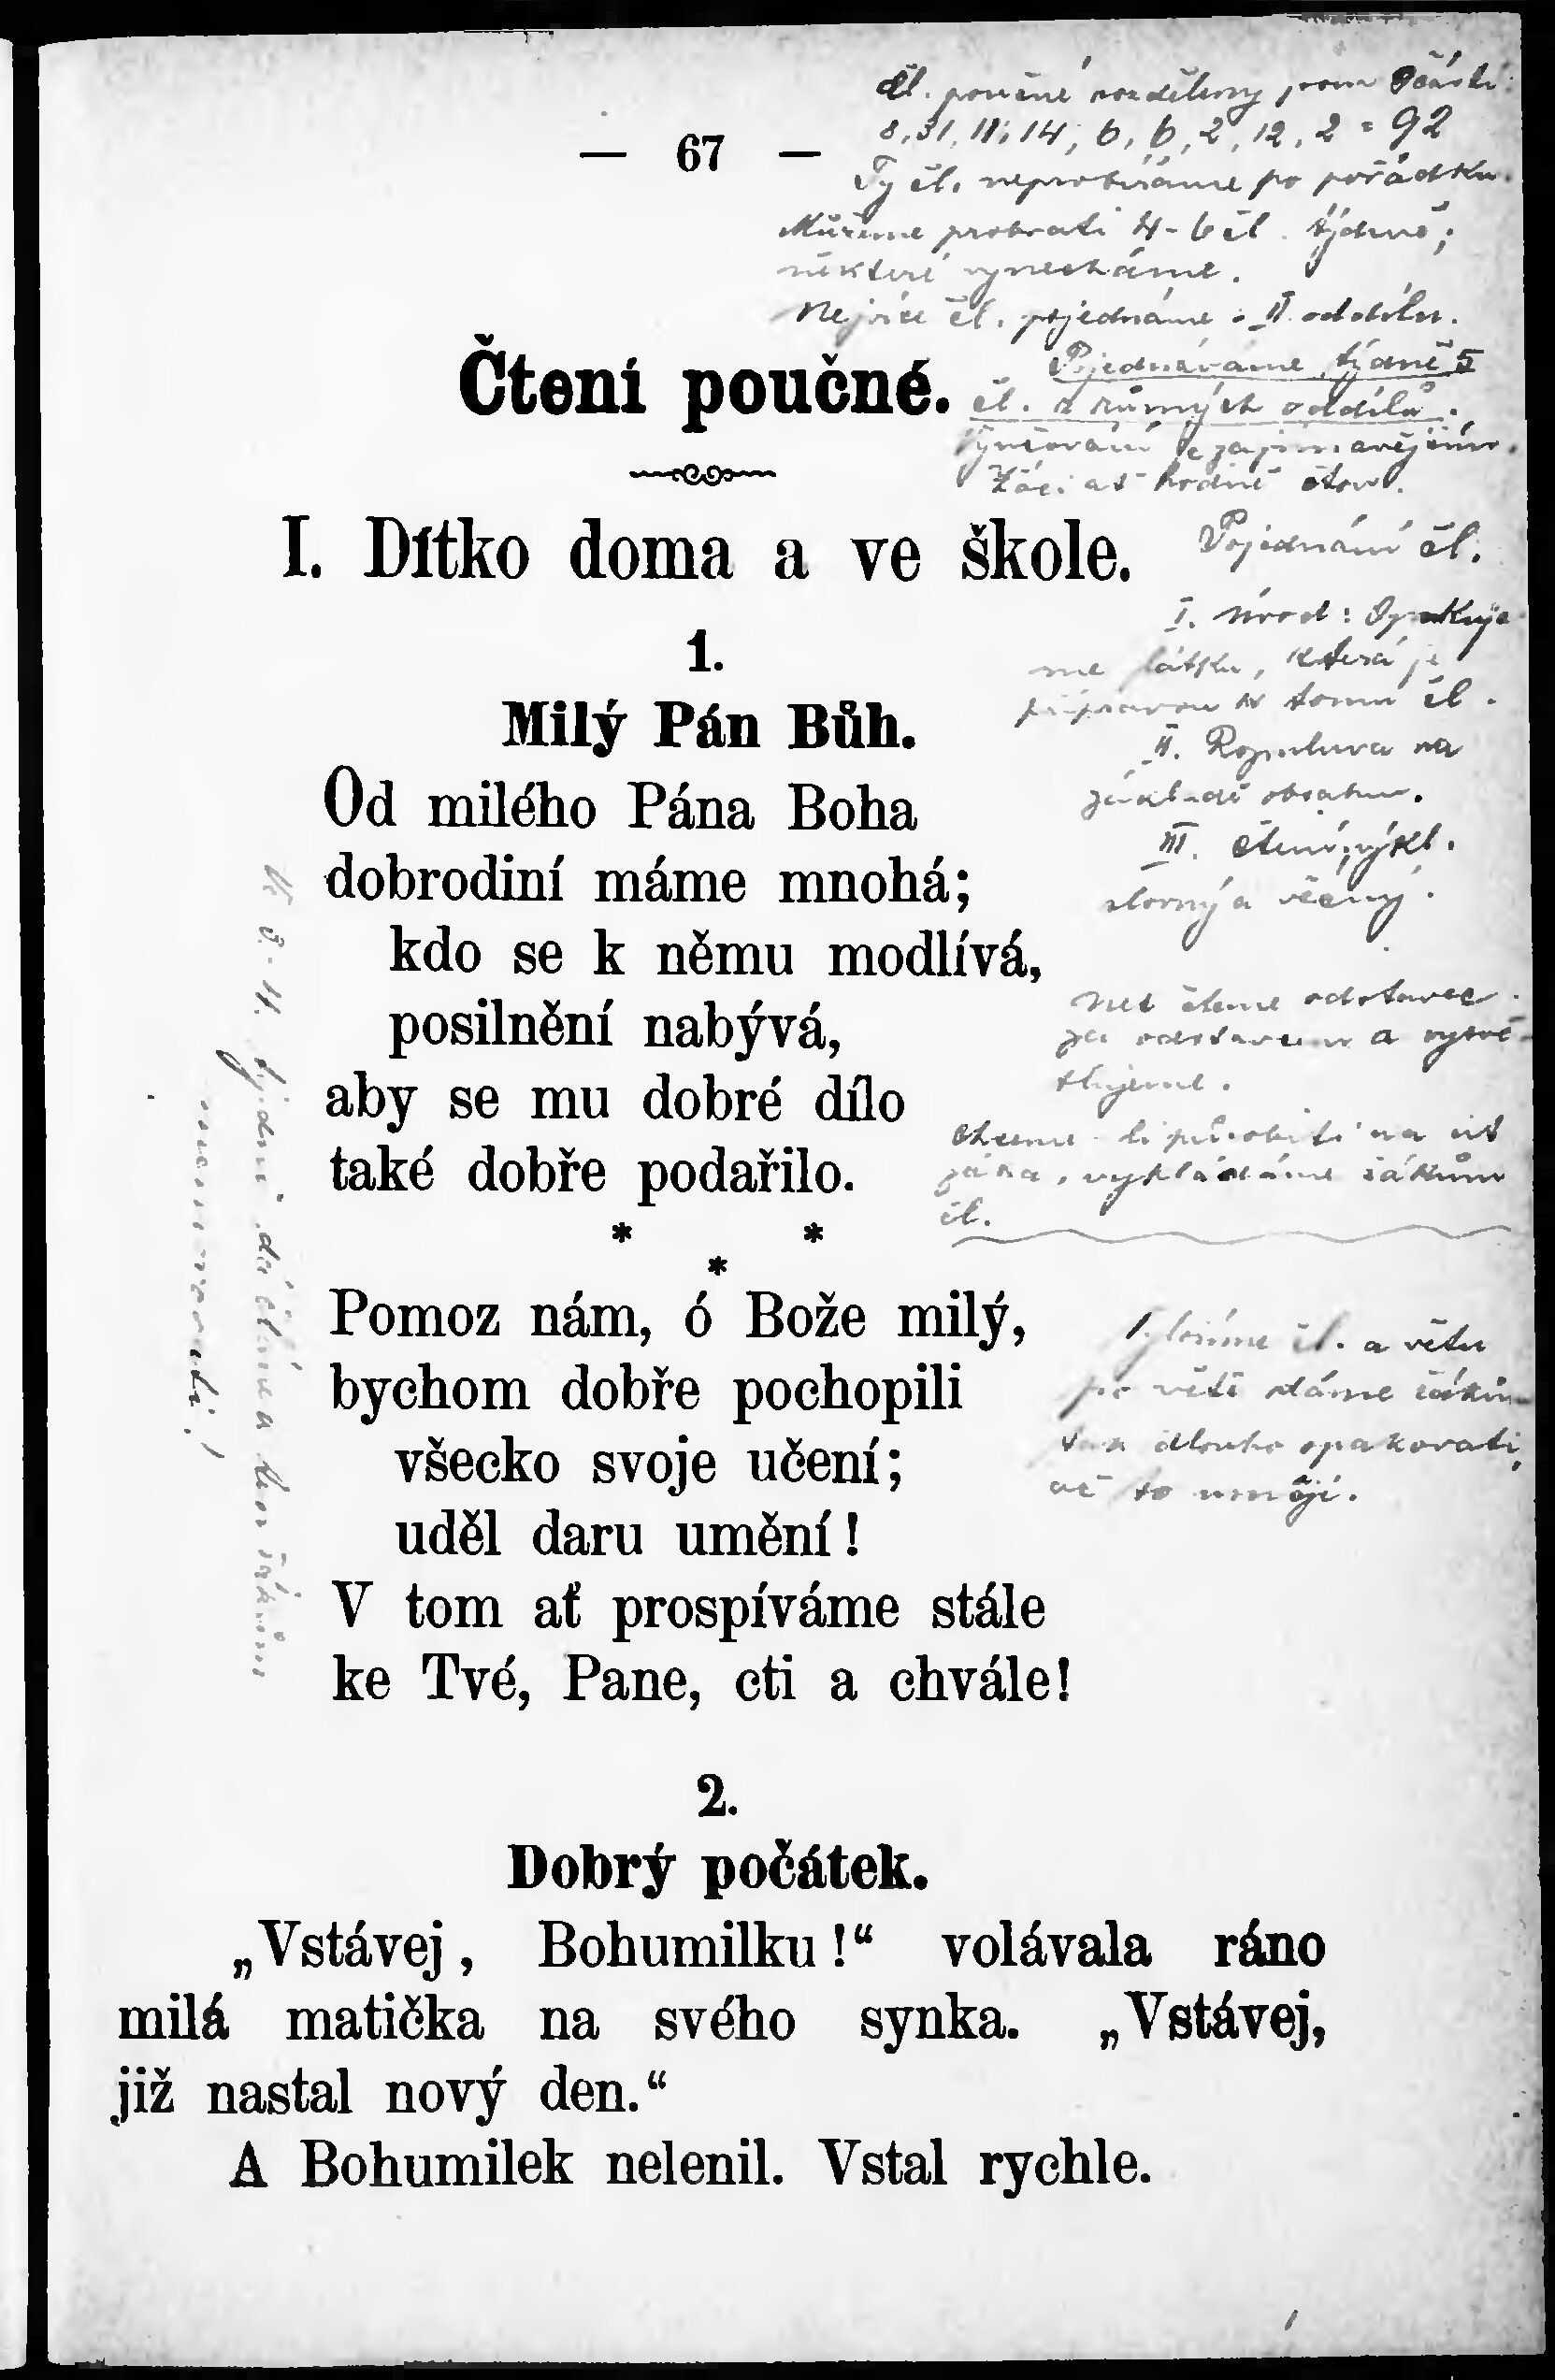 — 67 —
Čl. poučné rozděleny jsou 9 částí:
8, 31, 11, 14, 6, 6, 2, 12, 2 = 92
Ty čl. neprobíráme po pořádku.
Můžeme probrati 4-6 čl. týdně;
některé vynecháme.
Nejvíce čl. pojednáme o II. oddílu.
Pojednáváme týdně 5
čl. z různých oddílů.
Vyučování je zajímavějším.
Žáci ať hodně čtou.
Čtení poučné.
I. Dítko doma a ve škole.
Pojednání čl.
I. Úvod: Opakuje-
me látku, která je
přípravou k tomu čl.
II. Rozmluva na
základě obsahu.
III. Čtení, výkl.
slovný a věcný.
1.
Milý Pán Bůh.
Od milého Pána Boha
dobrodiní máme mnohá;
kdo se k němu modlívá,
posilnění nabývá,
aby se mu dobré dílo
také dobře podařilo.
* *
*
Pomoz nám, ó Bože milý,
bychom dobře pochopili
všecko svoje učení;
uděl daru umění!
V tom ať prospíváme stále
ke Tvé, Pane, cti a chvále!
čteme odstavec
za odstavcem a vysvě-
tlujeme.
Chceme-li působiti na cit
žáka, vykládáme žákům
čl.
čl. a větu
po větě dáme žákům
tak dlouho opakovati,
až to umějí.
2.
Dobrý počátek.
„Vstávej, Bohumilku!“ volávala ráno
milá matička na svého synka. „Vstávej,
již nastal nový den.“
A Bohumilek nelenil. Vstal rychle.